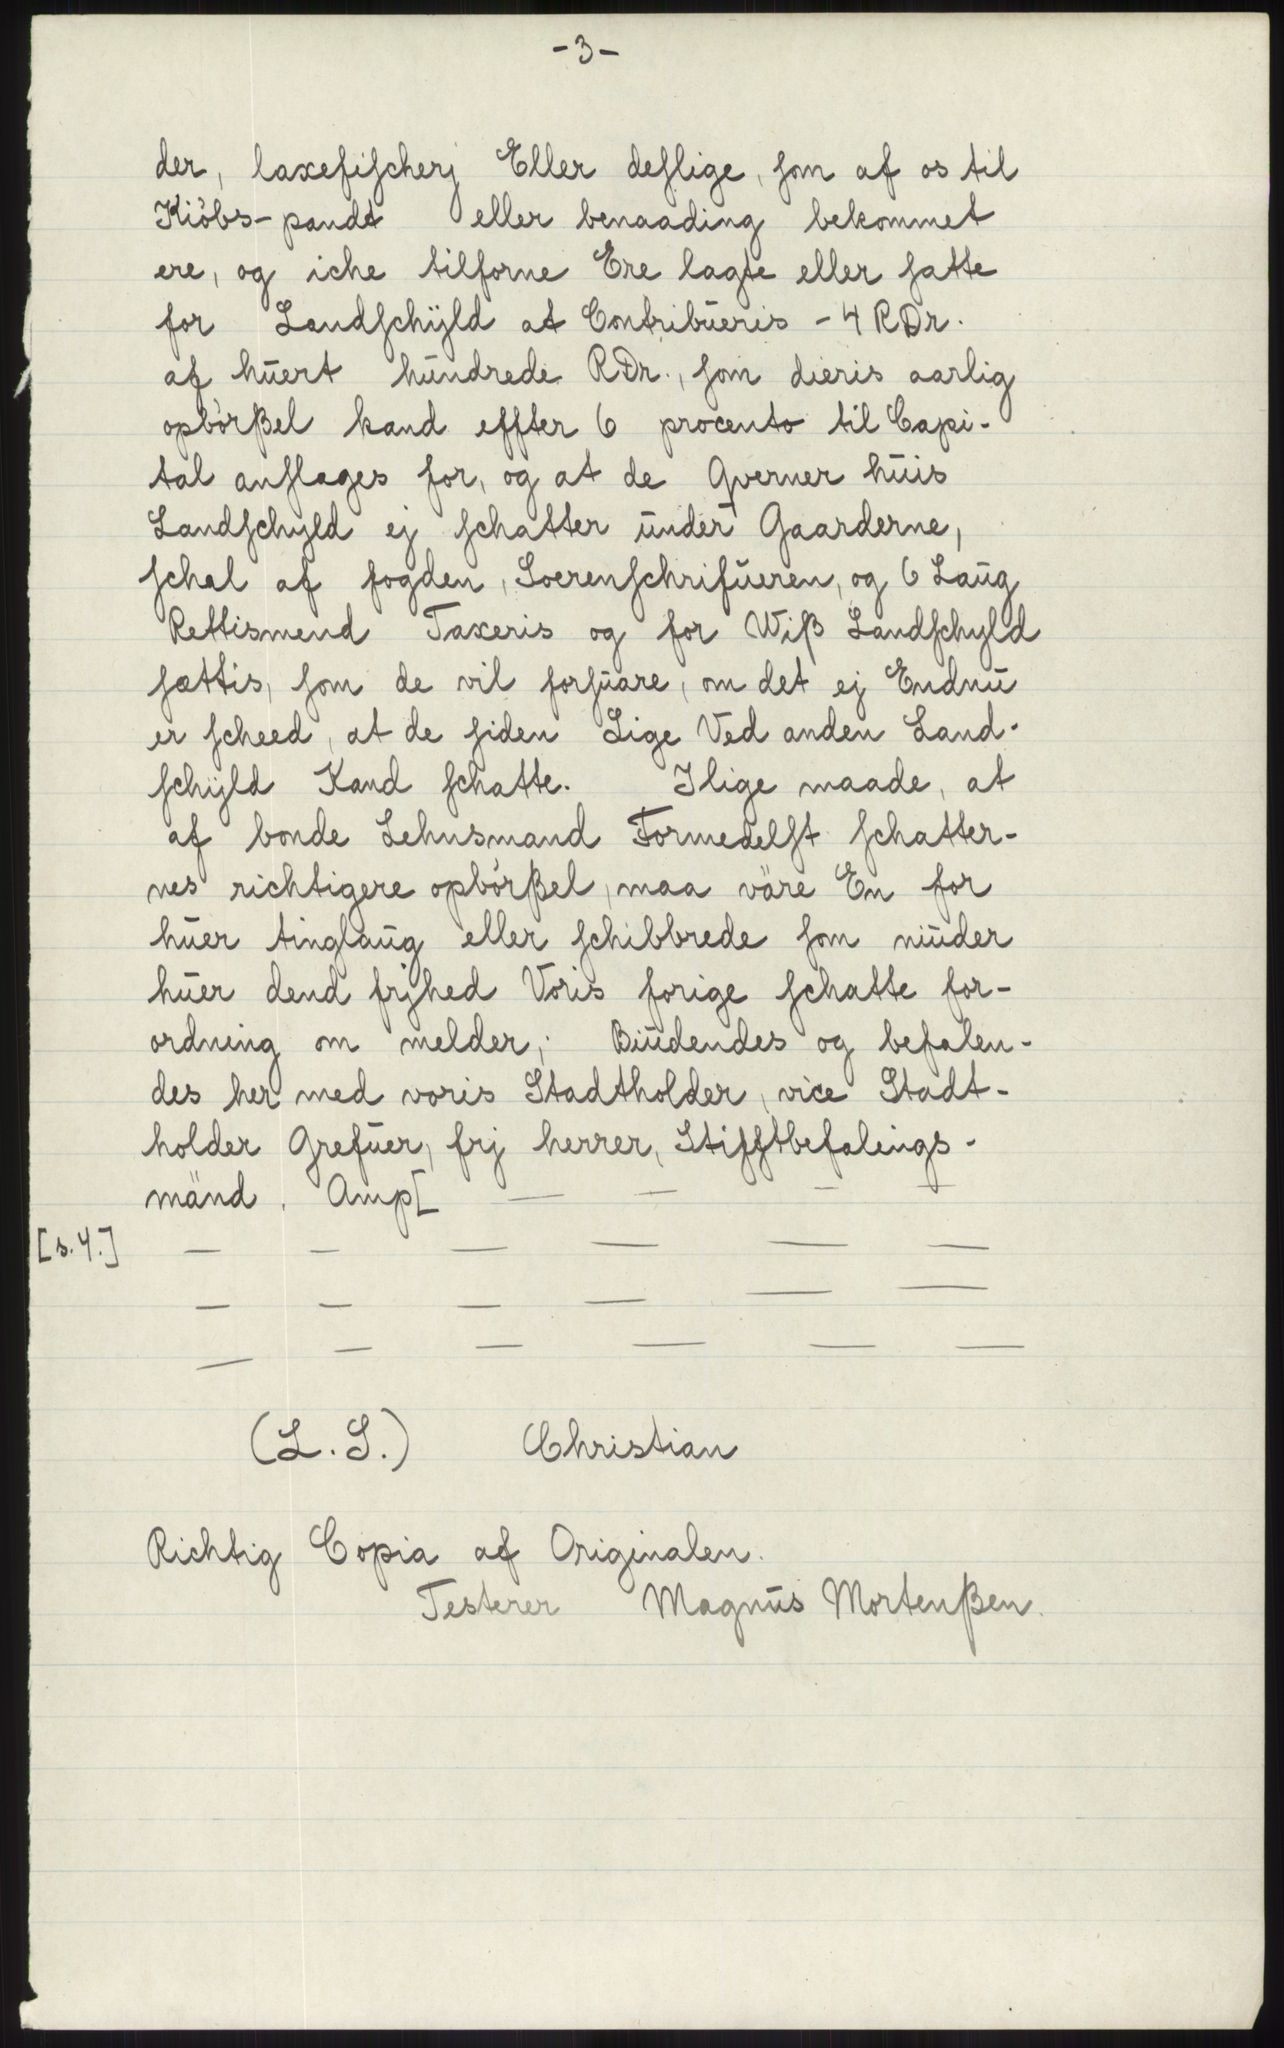 -3-
der, laxefiſcherj Eller deſlige, ſom af os til
Kiöbs-pandt eller benaading bekommet
ere, og iche tilforne Ere lagte eller ſatte
for Landſchÿld at Contribūeris - 4 RDr.
af hūert hūndrede RDr., ſom dieris aarlig
opbörßel kand effter 6 procento til Capi-
tal anſlages for, og at de Qverner hūis
Landſchyld ej ſchatter ūnder Gaarderne,
ſchal af fogden, Soerenſchrifūeren, og 6 Laūg
Rettismend Taxeris og for Wiß Landſchyld
ſættis, ſom de vil forſūare, om det ej Endnū
er ſcheed, at de ſiden Lige Ved anden Land-
ſchÿld Kand ſchatte. Ilige maade, at
af bonde Lehnsmand Formedelſt ſchatter-
nes richtigere opbörßel, maa väre En for
hūer tinglaūg eller ſchibbrede ſom niūder
hūer dend frjhed Voris forige ſchatte for-
ordning om melder; Biūdendes og befalen-
des her med voris Stadtholder, vice Stadt-
holder Grefūer, frj herrer, Stifftbefalings-
mänd. Amp[ — — — —
[s. 4.] — — — — — —
— — — — — —
— — — — — —
(L. S.) Christian
Richtig Copia af Originalen.
Testerer Magnūs Mortenßen.